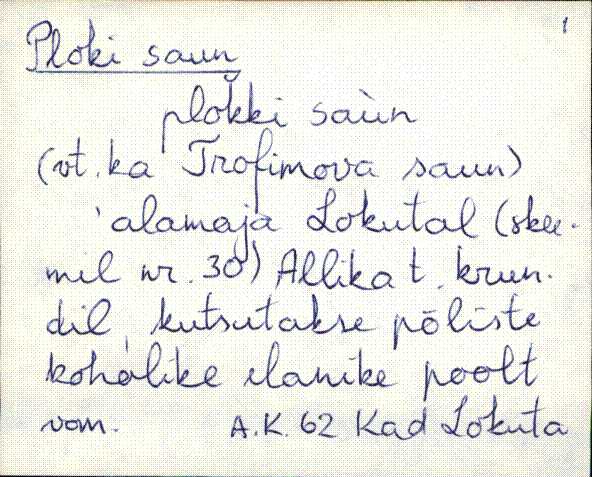 1
Ploki saun
plokki saùn
(vt. ka Trofimova saun)
'alamaja Lokutal (skee-
mil nr. 30) Allika t. krun-
dil, kutsutakse põliste
kohalike elanike poolt
vom. A.K. 62 Kad Lokuta